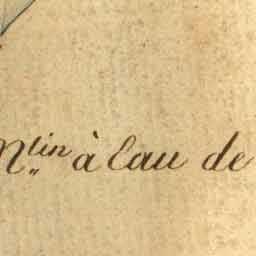 Mlin à Eau de